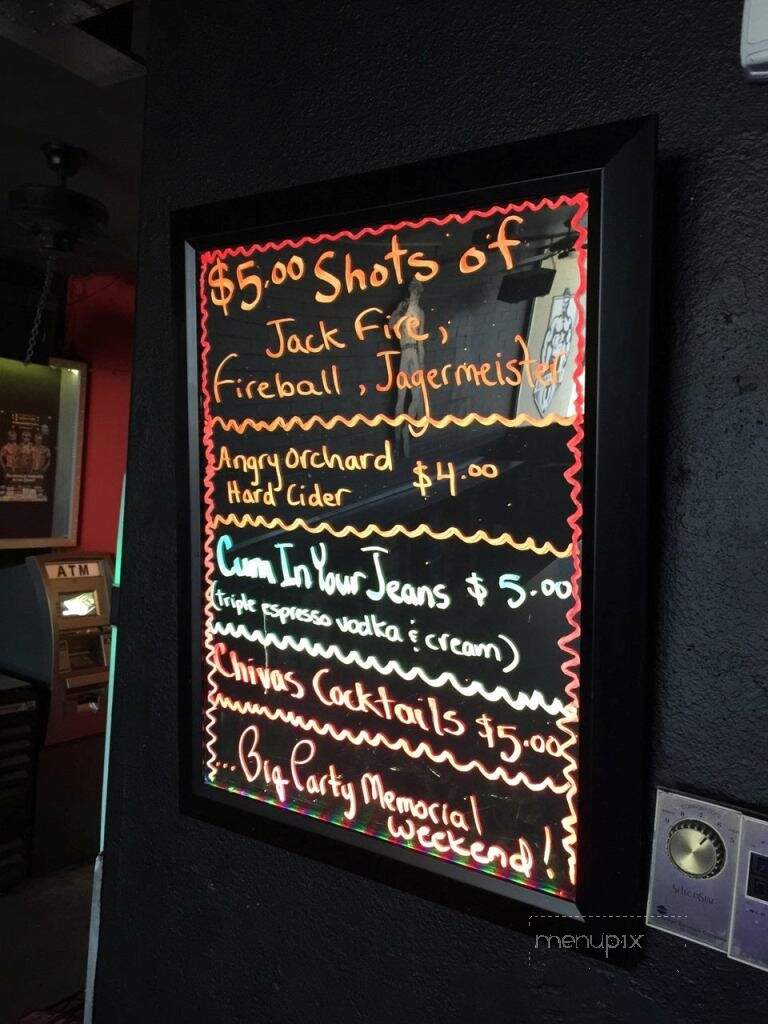 $5.00 Shots of
Jack Fire,
Fireball, Jagermeister
Angry Orchard $4.00
Hard Cider
Cum In Your Jeans $5.00
(triple espresso vodka & cream)
Chivas Cocktails $5.00
...Big Party Memorial
Weekend!
ATM
menupix